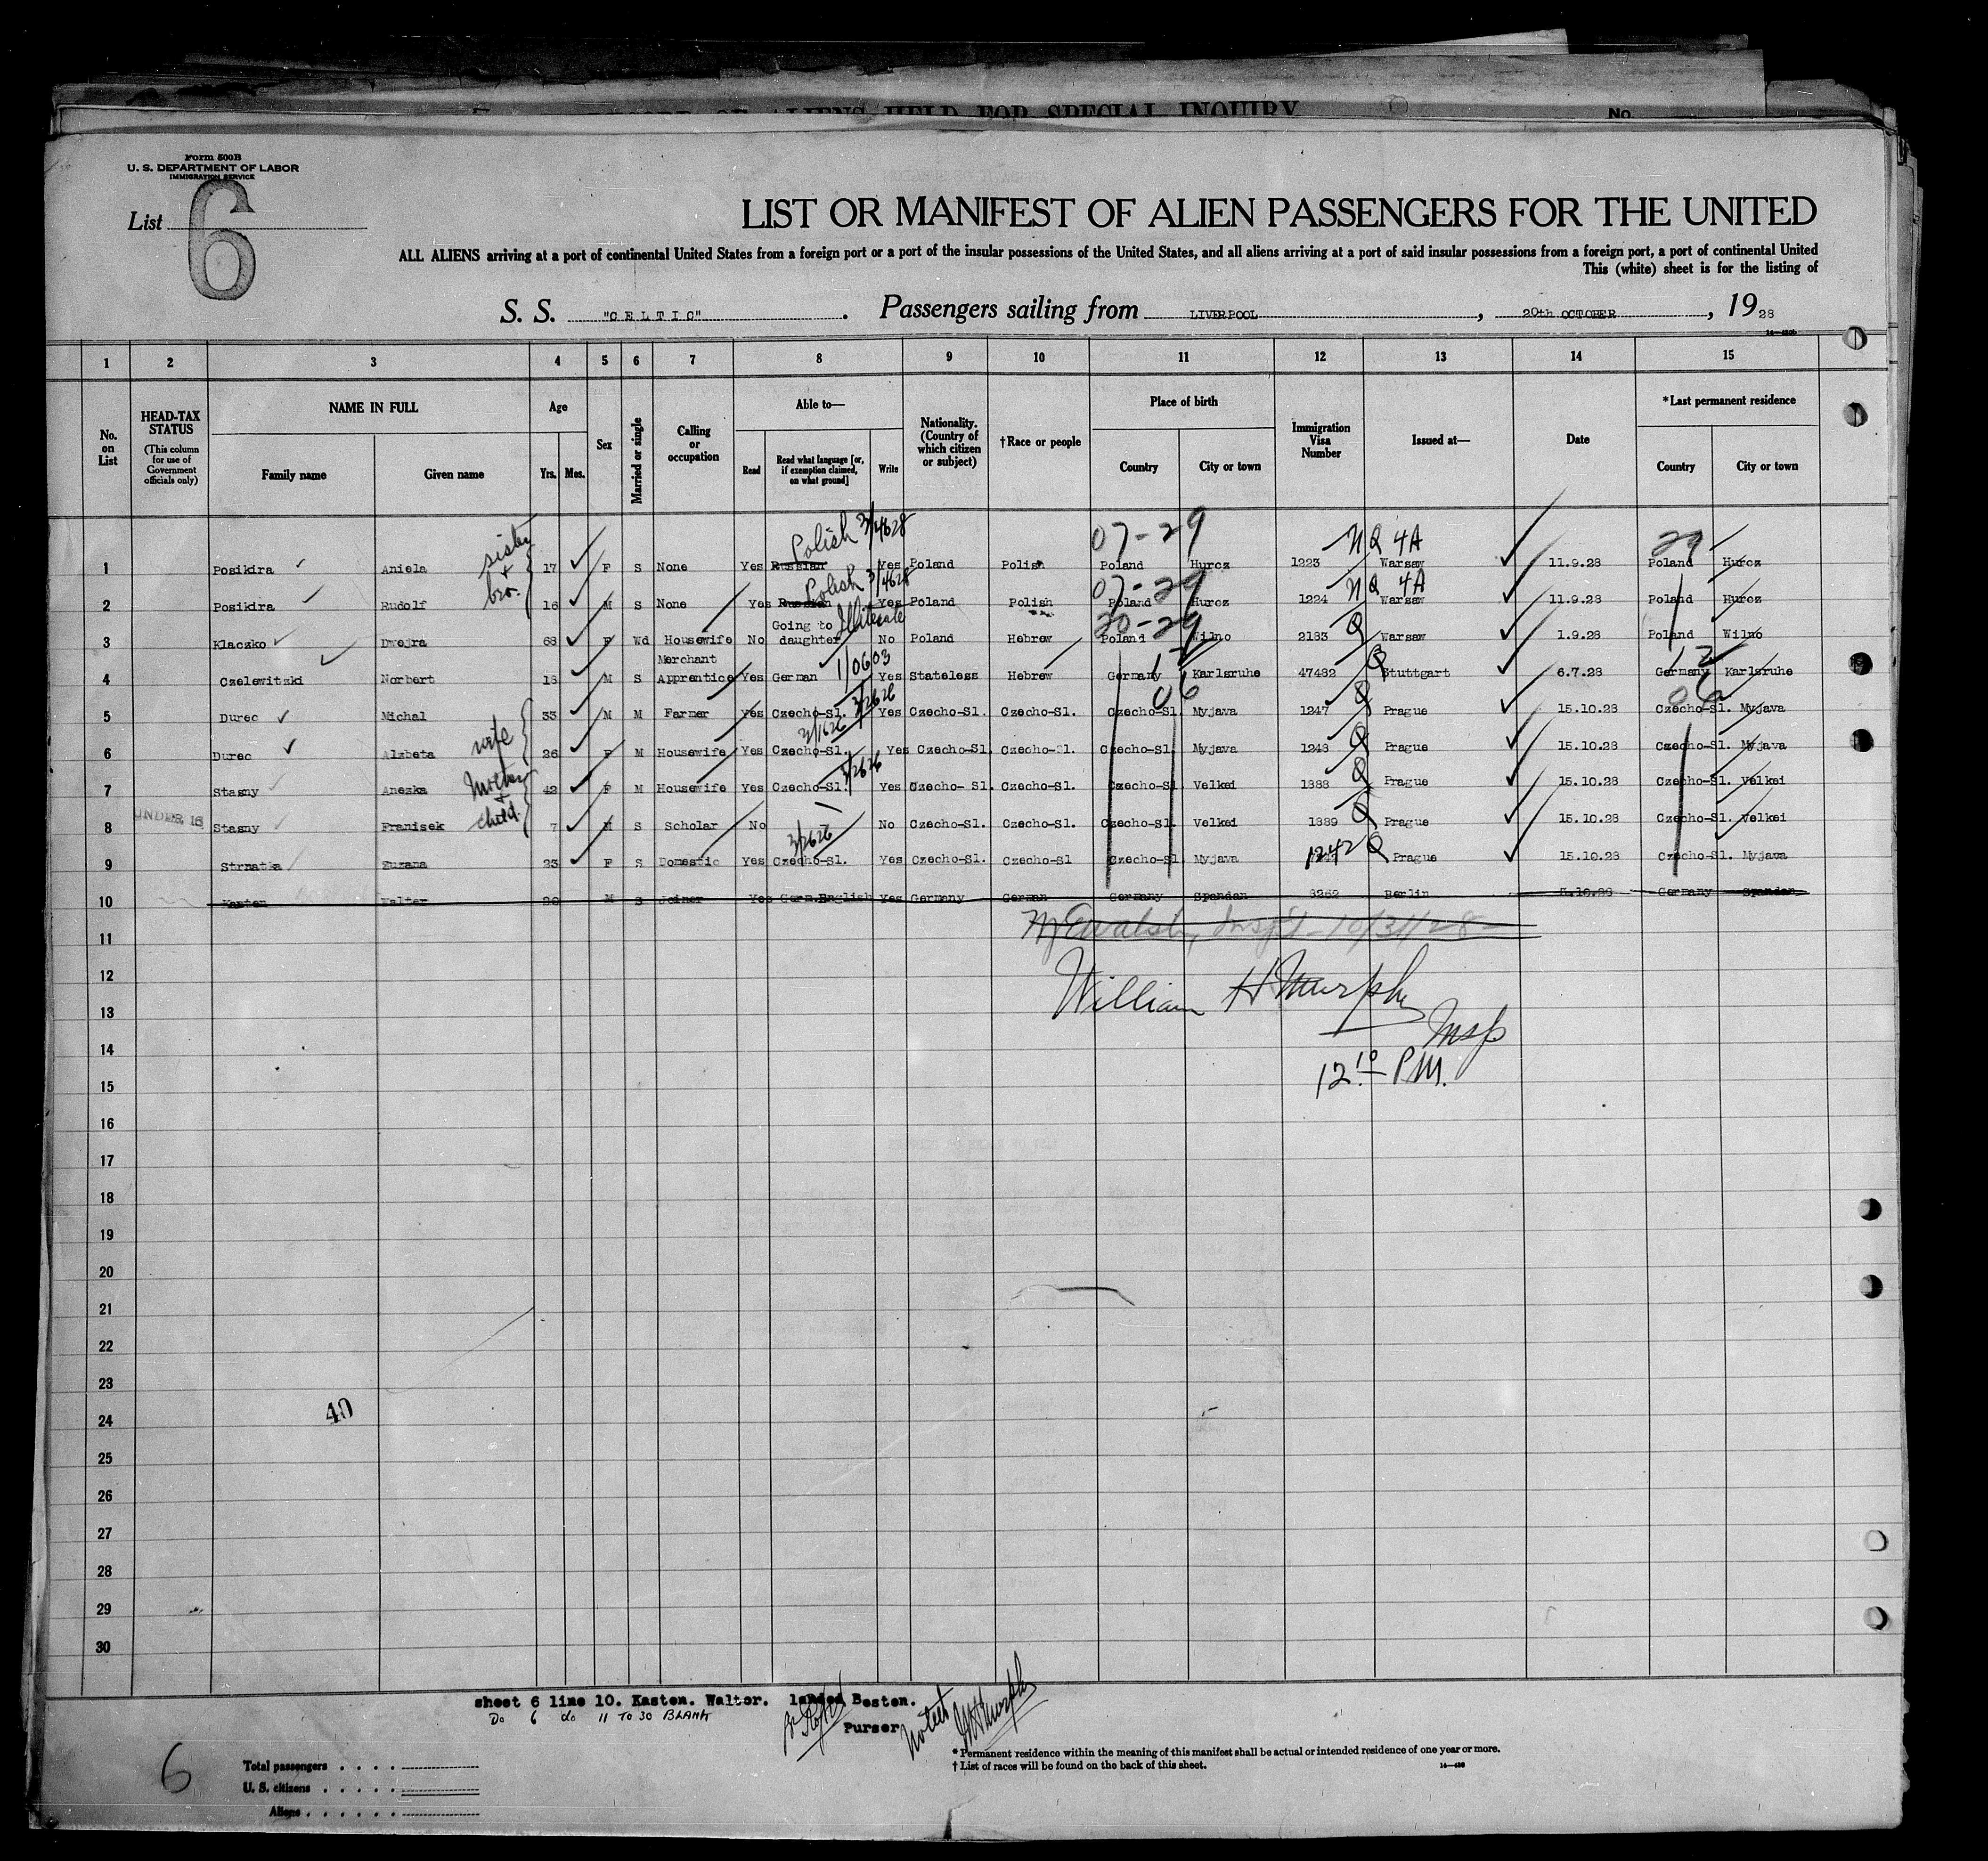 RECORD OF ALIENS HELD FOR SPECIAL INQUIRY No.
Form 500B
U. S. DEPARTMENT OF LABOR
IMMIGRATION SERVICE
List 6
LIST OR MANIFEST OF ALIEN PASSENGERS FOR THE UNITED
ALL ALIENS arriving at a port of continental United States from a foreign port or a port of the insular possessions of the United States, and all aliens arriving at a port of said insular possessions from a foreign port, a port of continental United
This (white) sheet is for the listing of
S. S. "CELTIC". Passengers sailing from LIVERPOOL, 20th OCTOBER, 1928
1 2 3 4 5 6 7 8 9 10 11 12 13 14 15
No. on List
HEAD-TAX STATUS (This column for use of Government officials only)
NAME IN FULL
Family name Given name
Age
Yrs. Mos.
Sex
Married or single
Calling or occupation
Able to—
Read Read what language [or, if exemption claimed, on what ground] Write
Nationality. (Country of which citizen or subject)
†Race or people
Place of birth
Country City or town
Immigration Visa Number
Issued at—
Date
*Last permanent residence
Country City or town
sister + bro.
Polish 3/4628 07-29 NQ 4A 29
1 Posikira Aniela 17 F S None Yes Russian Yes Poland Polish Poland Hurcz 1223 Warsaw 11.9.28 Poland Hurcz
Polish 3/4628 07-29 NQ 4A
2 Posikira Rudolf 16 M S None Yes Russian Yes Poland Polish Poland Hurcz 1224 Warsaw 11.9.28 Poland Hurcz
Illiterate 20-29 Q
3 Klaczko Dwojra 68 F Wd Housewife No Going to daughter No Poland Hebrew Poland Wilno 2183 Warsaw 1.9.28 Poland Wilno
1/0603 12 Q 12
4 Czelewitzki Norbert 18 M S Merchant Apprentice Yes German Yes Stateless Hebrew Germany Karlsruhe 47482 Stuttgart 6.7.28 Germany Karlsruhe
3/2626 06 Q 06
5 Durec Michal 33 M M Farmer Yes Czecho-Sl. Yes Czecho-Sl. Czecho-Sl. Czecho-Sl Myjava 1247 Prague 15.10.28 Czecho-Sl. Myjava
wife 3/2626 Q
6 Durec Alzbeta 26 F M Housewife Yes Czecho-Sl. Yes Czecho-Sl. Czecho-Sl. Czecho-Sl Myjava 1248 Prague 15.10.28 Czecho-Sl. Myjava
Mother + child 3/2626 Q
7 Stasny Anezka 42 F M Housewife Yes Czecho-Sl. Yes Czecho- Sl. Czecho-Sl. Czecho-Sl Velkei 1888 Prague 15.10.28 Czecho-Sl. Velkei
UNDER 16 Q
8 Stasny Franisek 7 M S Scholar No — No Czecho-Sl. Czecho-Sl. Czecho-Sl. Velkei 1889 Prague 15.10.28 Czecho-Sl. Velkei
3/2626 Q
9 Strnatka Zuzana 23 F S Domestic Yes Czecho-Sl. Yes Czecho-Sl. Czecho-Sl Czecho-Sl Myjava 1242 Prague 15.10.28 Czecho-Sl. Myjava
10 Kasten Walter 20 M S Joiner Yes Germ.English Yes Germany German Germany Spandan 8262 Berlin 5.10.28 Germany Spandan
11 10/31/28
12 William H Murphy
13 Insp
14
15 12 10 P.M.
16
17
18
19
20
21
22
23
24 40
25
26
27
28
29
30
sheet 6 line 10. Kasten. Walter. landed Boston.
Do 6 do 11 TO 30 BLANK
Purser
Noted WHMurphy
* Permanent residence within the meaning of this manifest shall be actual or intended residence of one year or more.
† List of races will be found on the back of this sheet.
6
Total passengers
U. S. citizens
Aliens